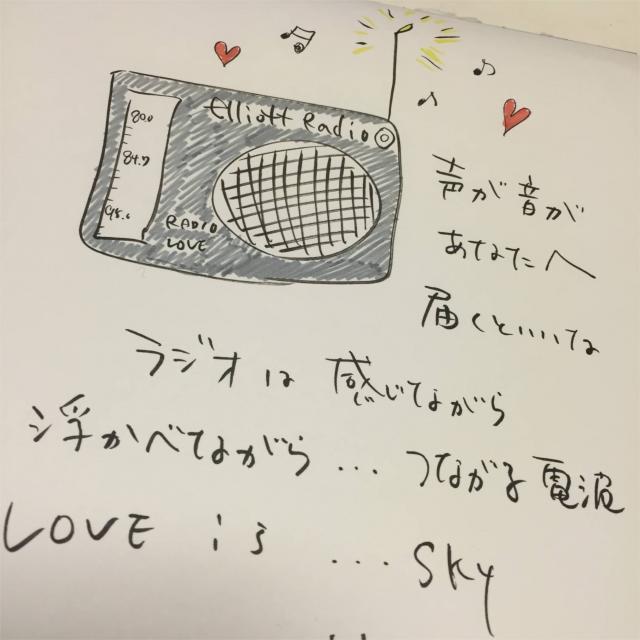 Elliott Radio
80.0
84.7
RADIO
LOVE
声が音が
あなたへ
届くといいな
ラジオは 感じてながら
浮かべてながら... つながる電波
LOVE is ... sky